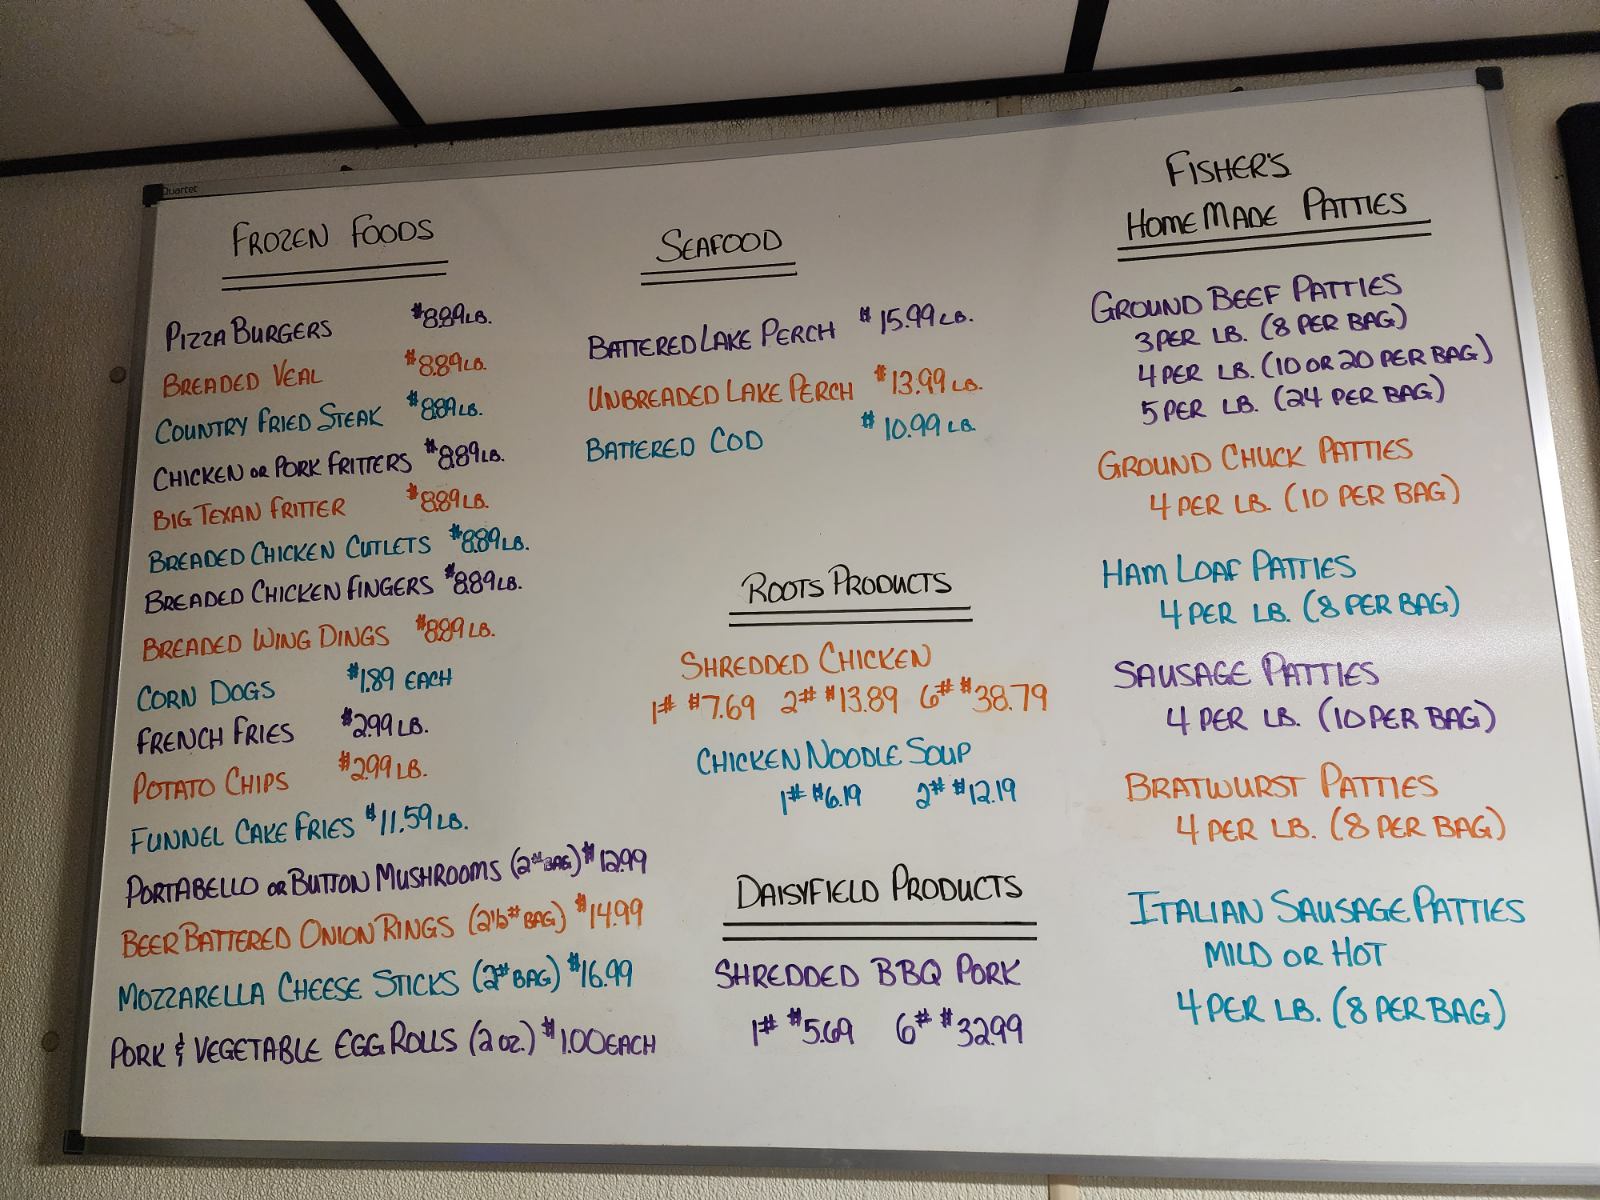 Quartet
FROZEN FOODS
PIZZA BURGERS $8.89 LB.
BREADED VEAL $8.89 LB.
COUNTRY FRIED STEAK $8.89 LB.
CHICKEN OR PORK FRITTERS $8.89 LB.
BIG TEXAN FRITTER $8.89 LB.
BREADED CHICKEN CUTLETS $8.89 LB.
BREADED CHICKEN FINGERS $8.89 LB.
BREADED WING DINGS $8.89 LB.
CORN DOGS $1.89 EACH
FRENCH FRIES $2.99 LB.
POTATO CHIPS $2.99 LB.
FUNNEL CAKE FRIES $11.59 LB.
PORTABELLO OR BUTTON MUSHROOMS (2# BAG) $12.99
BEER BATTERED ONION RINGS (2½# BAG) $14.99
MOZZARELLA CHEESE STICKS (2# BAG) $16.99
PORK & VEGETABLE EGG ROLLS (2 OZ.) $1.00 EACH
SEAFOOD
BATTERED LAKE PERCH $15.99 LB.
UNBREADED LAKE PERCH $13.99 LB.
BATTERED COD $10.99 LB.
ROOTS PRODUCTS
SHREDDED CHICKEN
1# $7.69 2# $13.89 6# $38.79
CHICKEN NOODLE SOUP
1# $6.19 2# $12.19
DAISYFIELD PRODUCTS
SHREDDED BBQ PORK
1# $5.69 6# $32.99
FISHER'S
HOMEMADE PATTIES
GROUND BEEF PATTIES
3 PER LB. (8 PER BAG)
4 PER LB. (10 OR 20 PER BAG)
5 PER LB. (24 PER BAG)
GROUND CHUCK PATTIES
4 PER LB. (10 PER BAG)
HAM LOAF PATTIES
4 PER LB. (8 PER BAG)
SAUSAGE PATTIES
4 PER LB. (10 PER BAG)
BRATWURST PATTIES
4 PER LB. (8 PER BAG)
ITALIAN SAUSAGE PATTIES
MILD OR HOT
4 PER LB. (8 PER BAG)